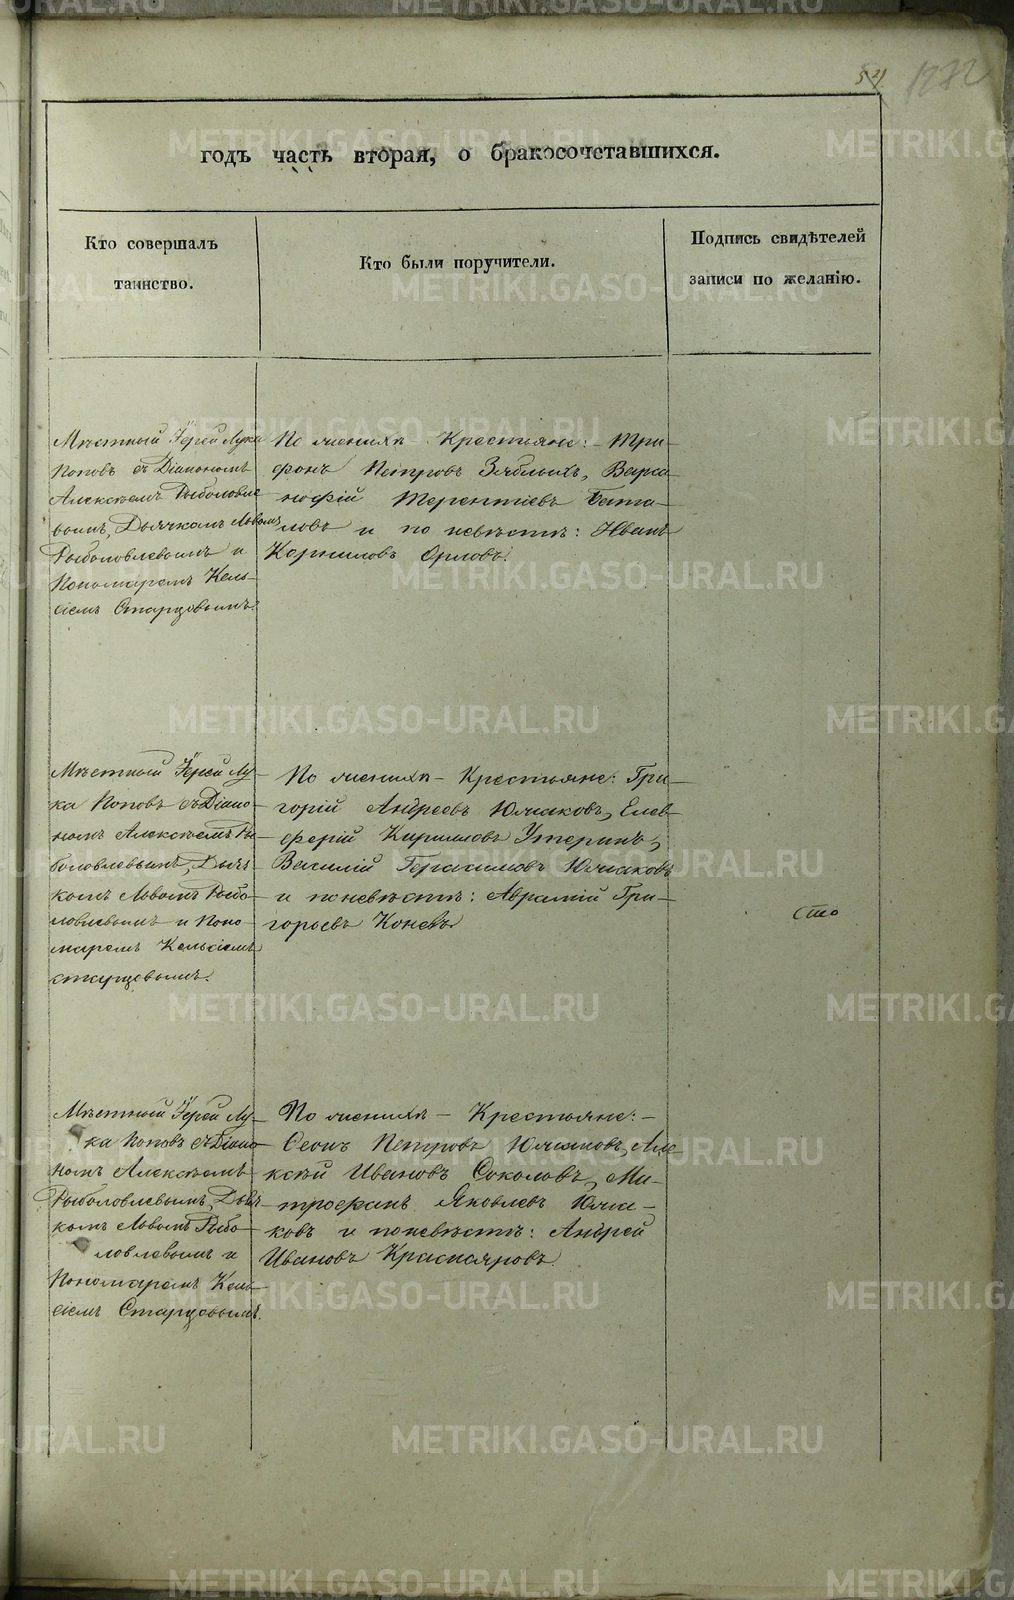 1272
годъ часть вторая, о бракосочетавшихся.
Кто совершалъ
таинство.
Кто были поручители.
Подпись свидѣтелей
записи по желанію.
Мѣстный Іерей Лука
Поповъ съ Діакономъ
Алексѣемъ Рыболовле
вымъ, Дьячкомъ Львомъ
Рыболовлевымъ и
Пономаремъ Кель-
сіемъ Старцовымъ.
По женихѣ - Крестьяне: Три-
фонъ Петровъ Зяблыхъ, Варса-
нофій Терентіевъ
ловъ и по невѣстѣ: Иванъ
Корниловъ Орловъ.
Мѣстный Іерей Лу-
ка Поповъ съ Діако-
номъ Алексѣемъ Ры
боловлевымъ, Дьяч
комъ Львомъ Рыбо-
ловлевымъ и Поно-
маремъ Кельсіемъ
старцовымъ.
По женихѣ - Крестьяне: Гри-
горій Андреевъ Южаковъ, Елев-
ферій Кириловъ Утеринъ,
Василій Герасимовъ Южаковъ
и по невѣстѣ: Аврамій Гри-
горьевъ Коневъ
сто
Мѣстный Іерей Лу-
ка Поповъ съ Діако
номъ Алексѣемъ
Рыболовлевымъ, Дьяч-
комъ Львомъ Рыбо-
ловлевымъ и
Пономаремъ Кель-
сіемъ Старцовымъ.
По женихѣ - Крестьяне: -
Ѳеонъ Петровъ Южаковъ, Але
ксѣй Ивановъ Соколовъ, Ми-
трофанъ Яковлевъ Южа-
ковъ и по невѣстѣ: Андрей
Ивановъ Краснояровъ.
METRIKI.GASO-URAL.RU